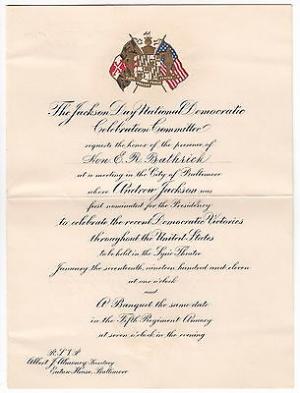 The Jackson Day National Democratic
Celebration Committee
requests the honor of the presence of
Hon E. R. Bathrick
at a meeting in the City of Baltimore
where Andrew Jackson was
first nominated for the Presidency
to celebrate the recent Democratic Victories
throughout the United States
to be held in the Lyric Theatre
January the seventeenth, nineteen hundred and eleven
at one o'clock
and
A Banquet the same date
in the Fifth Regiment Armory
at seven o'clock in the evening
R.S.V.P.
Albert J. Almoney Secretary
Eutaw House, Baltimore